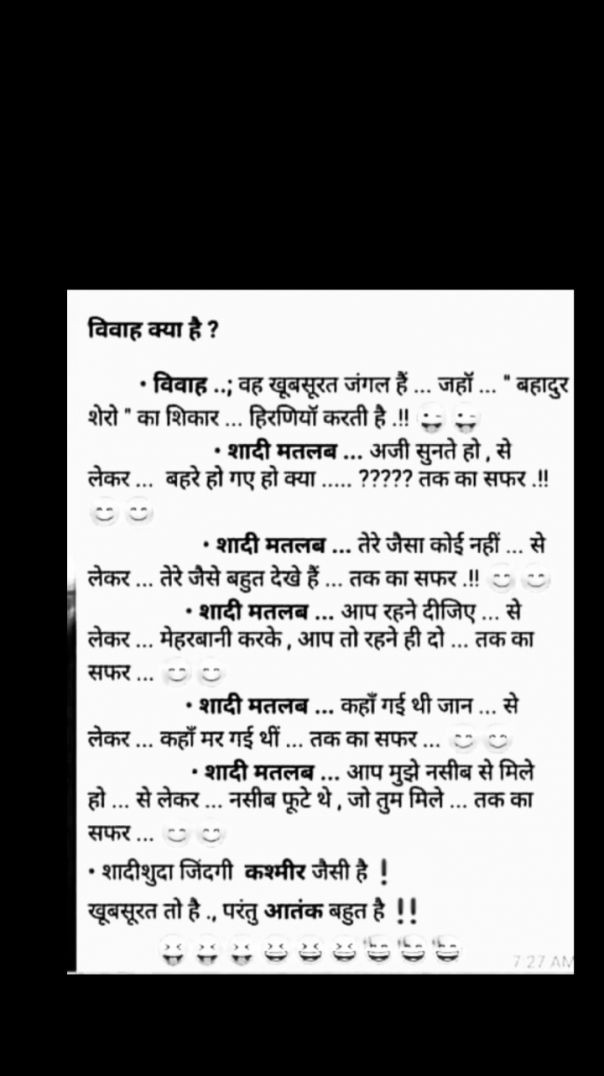 विवाह क्या है ?
• विवाह ..; वह खूबसूरत जंगल हैं ... जहाॅं ... " बहादुर
शेरो " का शिकार ... हिरणियाॅं करती है .!! 😝 😝
• शादी मतलब ... अजी सुनते हो , से
लेकर ... बहरे हो गए हो क्या ..... ????? तक का सफर .!!
😊 😊
• शादी मतलब ... तेरे जैसा कोई नहीं ... से
लेकर ... तेरे जैसे बहुत देखे हैं ... तक का सफर .!! 😊 😊
• शादी मतलब ... आप रहने दीजिए ... से
लेकर ... मेहरबानी करके , आप तो रहने ही दो ... तक का
सफर ... 😊 😊
• शादी मतलब ... कहाँ गई थी जान ... से
लेकर ... कहाँ मर गई थीं ... तक का सफर ... 😊 😊
• शादी मतलब ... आप मुझे नसीब से मिले
हो ... से लेकर ... नसीब फूटे थे , जो तुम मिले ... तक का
सफर ... 😊 😊
• शादीशुदा जिंदगी कश्मीर जैसी है ❗
खूबसूरत तो है ., परंतु आतंक बहुत है ‼
😝 😝 😝 😆 😆 😆 😂 😂 😂
7:27 AM